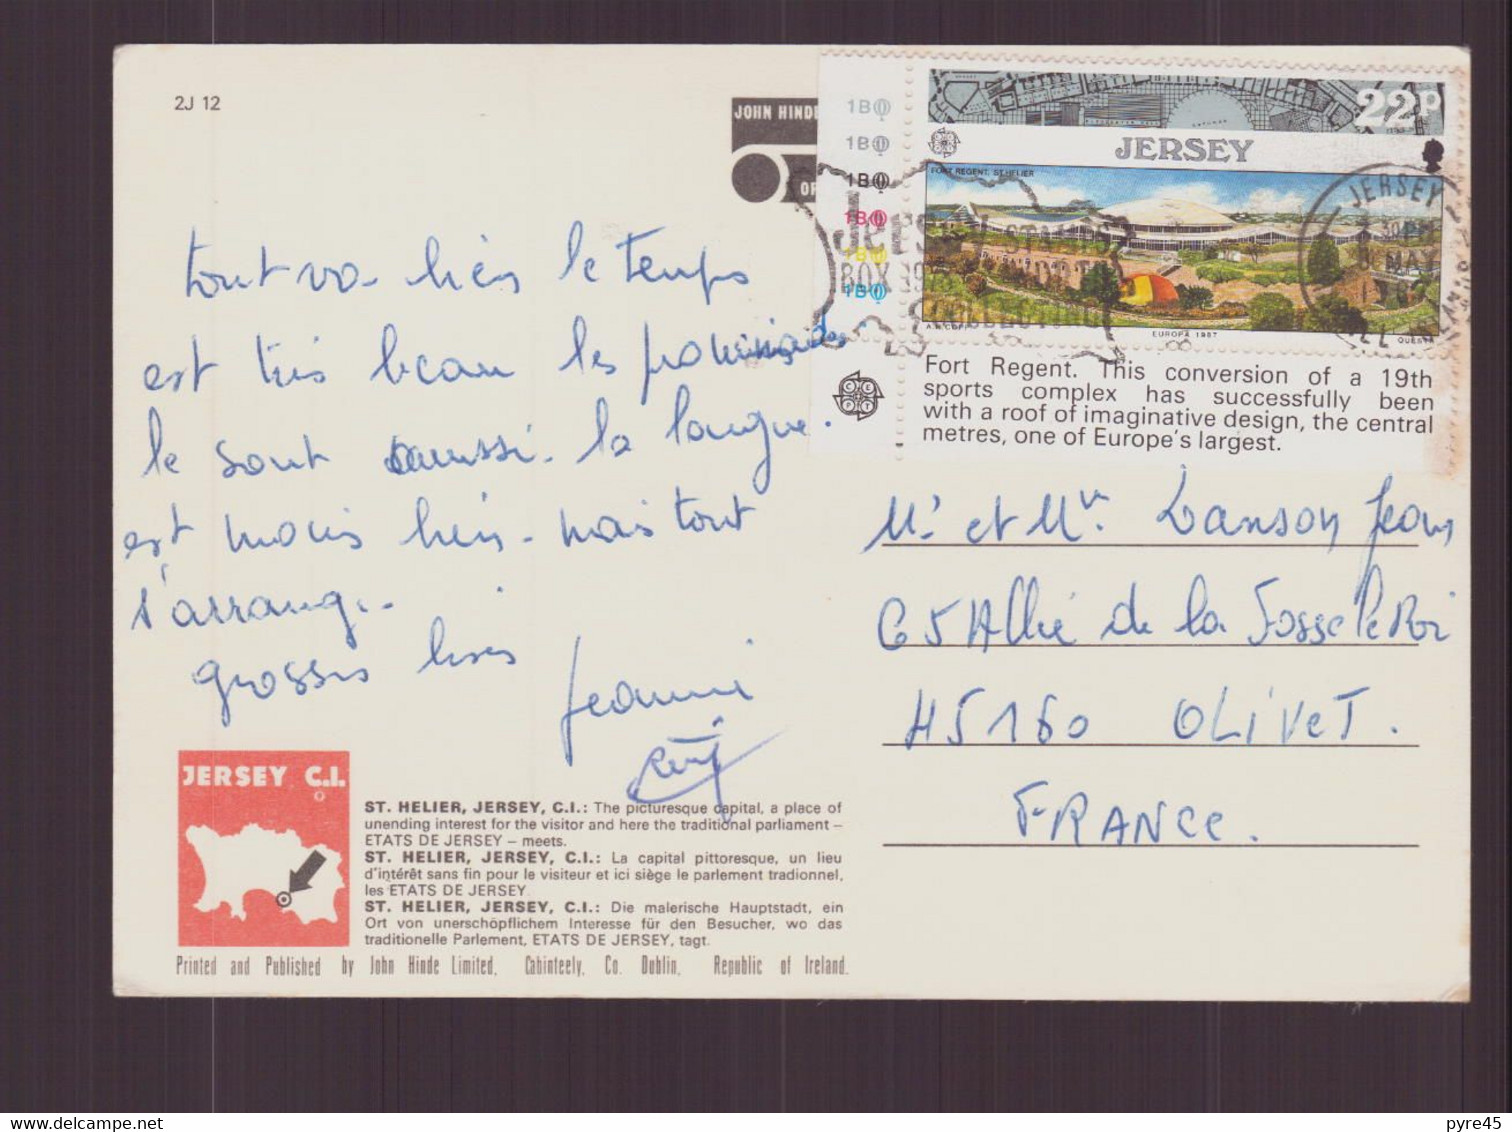 2J 12
JOHN HINDE
OR
1BO
1BO
1BO
1BO
1BO
1BO
22P
JERSEY
FORT REGENT, ST. HELIER
A.R. COPP
EUROPA 1987
QUESTA
Jersey STAMPS
BOX
COLLECTING
JERSEY
MAY
Fort Regent. This conversion of a 19th
sports complex has successfully been
with a roof of imaginative design, the central
metres, one of Europe's largest.
tout va bien le temps
est très beau les promenades
le sont aussi. la langue
est moins bien. mais tout
s'arrange.
grosses bises
Jeannine
Mr et Mme Danson Jean
65 Allée de la Fosse le Roi
45160 OLIVET.
FRANCE.
JERSEY C.I.
ST. HELIER, JERSEY, C.I.: The picturesque capital, a place of
unending interest for the visitor and here the traditional parliament –
ETATS DE JERSEY – meets.
ST. HELIER, JERSEY, C.I.: La capital pittoresque, un lieu
d'intérêt sans fin pour le visiteur et ici siège le parlement tradionnel,
les ETATS DE JERSEY
ST. HELIER, JERSEY, C.I.: Die malerische Hauptstadt, ein
Ort von unerschöpflichem Interesse für den Besucher, wo das
traditionelle Parlement, ETATS DE JERSEY, tagt.
Printed and Published by John Hinde Limited, Cabinteely, Co. Dublin, Republic of Ireland.
delcampe.net
pyre45